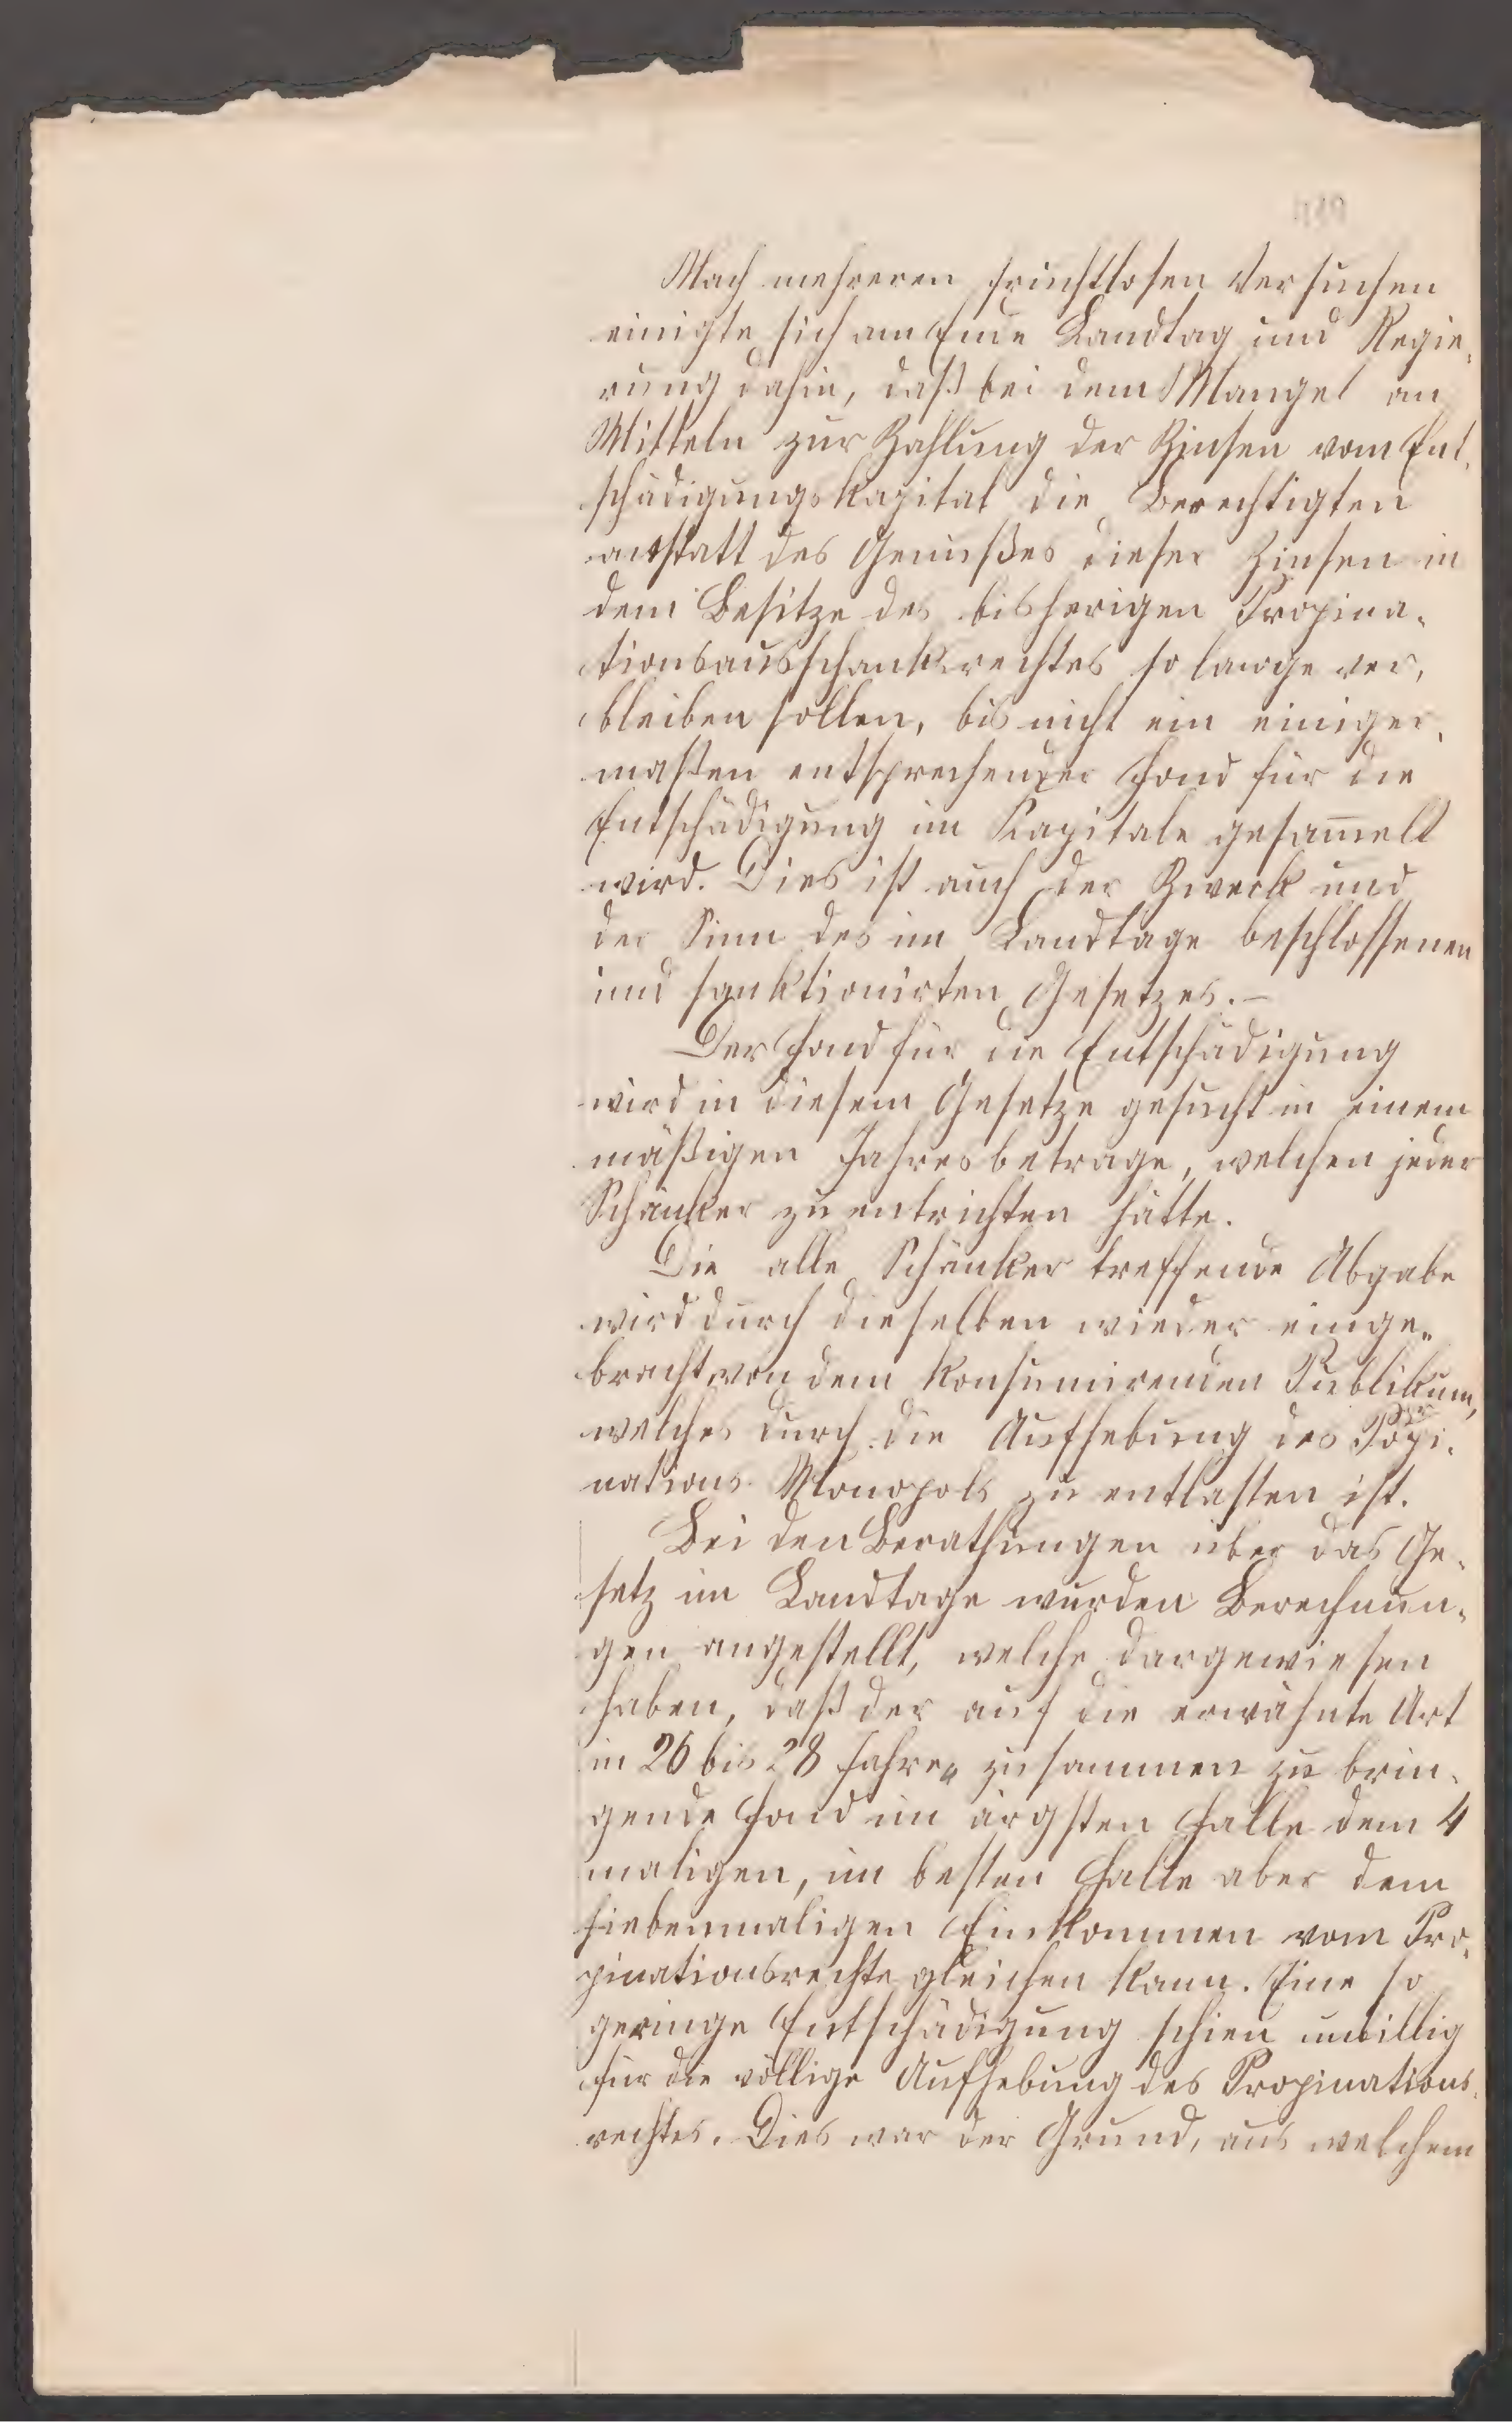 Nach mehreren fruchtlosen Versuchen
einigte sich am Ende Landtag und Regie-
rung dahin, daß bei dem Mangel an
Mitteln zur Zahlung der Zinsen vom Ent-
schädigungskapital die Berechtigten
anstatt des Genußes dieser Zinsen in
dem Besitze des bisherigen Propina-
tionsausschankrechtes so lange ver-
bleiben sollen, bis nicht ein einiger-
maßen entsprechender Fond für die
Entschädigung im Kapitale gesam̅elt
wird. Dies ist auch der Zweck und
der Sinn des im Landtage beschlossenen
und sanktionirten Gesetzes.-
Der Fond für die Entschädigung
wird in diesem Gesetze gesucht in einem
mäßigen Jahresbetrage, welchen jeder
Schänker zu entrichten hätte.
Die alle Schänker treffende Abgabe
wird durch dieselben wieder einge-
bracht von dem konsumirenden Publikum,
welches durch die Aufhebung des Propi-
nations Monopols zu entlasten ist.
Bei den Berathungen über das Ge-
setz im Landtage wurden Berechnun-
gen angestellt, welche dargewiesen
haben, daß der auf die erwähnte Art
in 26 bis 28 Jahren zusammen zu brin-
gende Fond im ärgsten Falle dem 4
maligen, im besten Falle aber dem
siebenmaligen Einkommen vom Pro-
pinationsrechte gleichen kann. Eine so
geringe Entschädigung schien unbillig
für die völlige Aufhebung des Propinations-
rechtes. Dies war der Grund, aus welchem